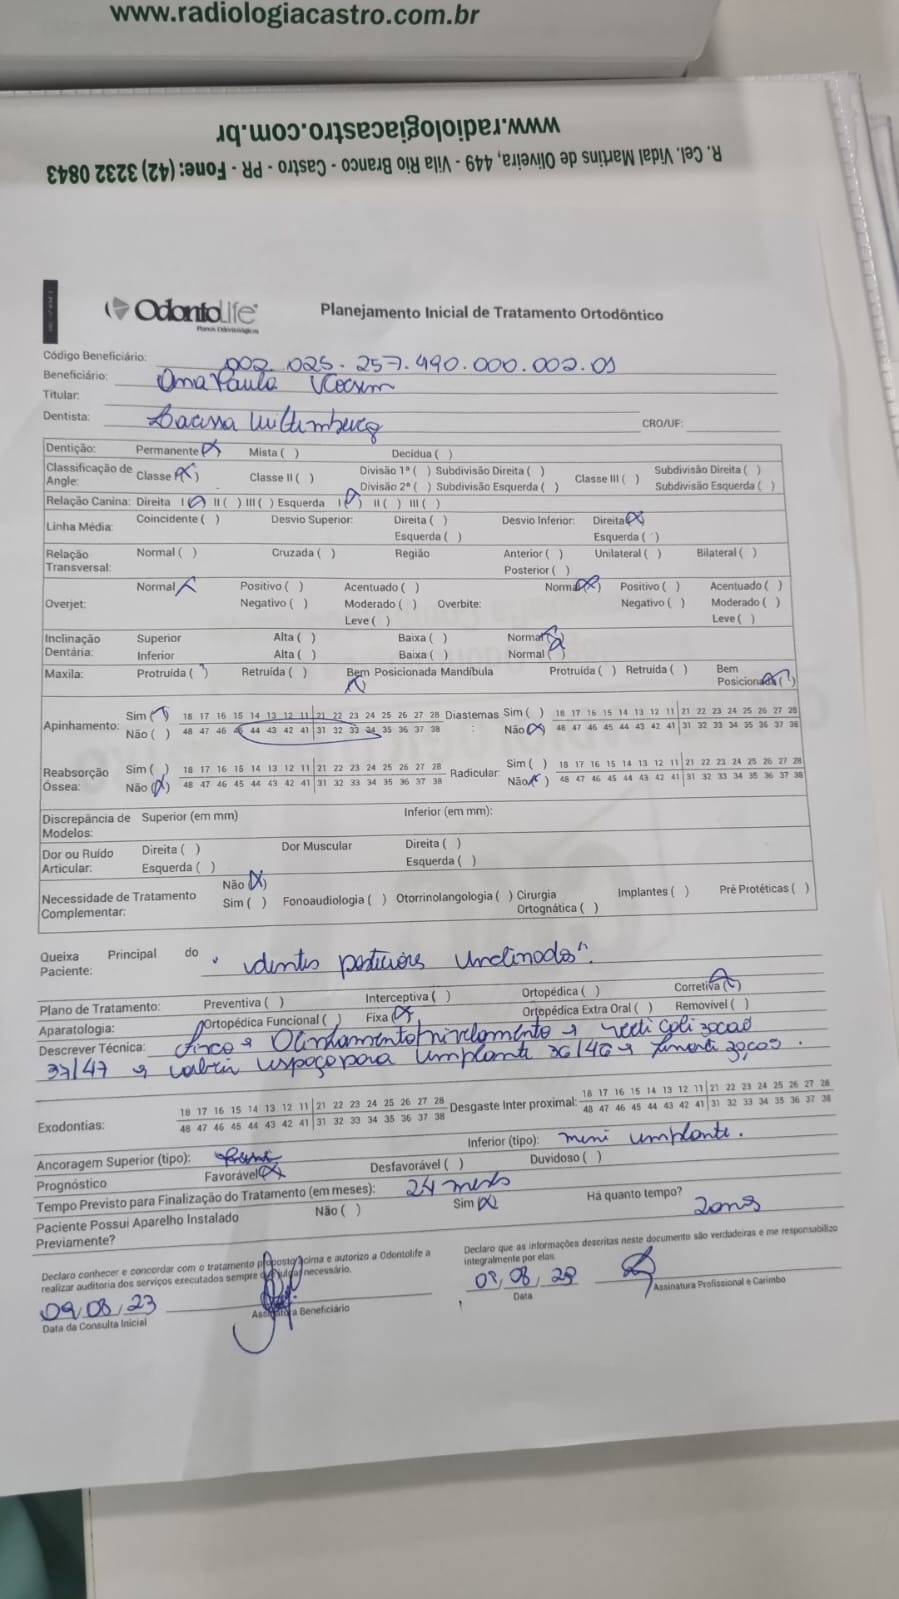 www.radiologiacastro.com.br
www.radiologiacastro.com.br
R. Cel. Vidal Martins de Oliveira, 449 - Vila Rio Branco - Castro - PR - Fone: (42) 3232 0843
OdontoLife Planejamento Inicial de Tratamento Ortodôntico
Planos Odontológicos
Código Beneficiário: 002.025.257.490.000.002.01
Beneficiário: Ana Paula
Titular:
Dentista: CRO/UF:
Dentição: Permanente (X) Mista ( ) Decídua ( )
Classificação de Angle: Classe I (X) Classe II ( ) Divisão 1ª ( ) Subdivisão Direita ( ) Classe III ( ) Subdivisão Direita ( )
Divisão 2ª ( ) Subdivisão Esquerda ( ) Subdivisão Esquerda ( )
Relação Canina: Direita I (X) II ( ) III ( ) Esquerda I (X) II ( ) III ( )
Linha Média: Coincidente ( ) Desvio Superior: Direita ( ) Desvio Inferior: Direita (X)
Esquerda ( ) Esquerda ( )
Relação Transversal: Normal ( ) Cruzada ( ) Região Anterior ( ) Unilateral ( ) Bilateral ( )
Posterior ( )
Normal (X) Positivo ( ) Acentuado ( ) Normal (X) Positivo ( ) Acentuado ( )
Overjet: Negativo ( ) Moderado ( ) Overbite: Negativo ( ) Moderado ( )
Leve ( ) Leve ( )
Inclinação Dentária: Superior Alta ( ) Baixa ( ) Normal (X)
Inferior Alta ( ) Baixa ( ) Normal (X)
Maxila: Protruida ( ) Retruída ( ) Bem Posicionada X Mandíbula Protruida ( ) Retruída ( ) Bem Posicionada (X)
Apinhamento: Sim (X) 18 17 16 15 14 13 12 11 21 22 23 24 25 26 27 28 Diastemas : Sim ( ) 18 17 16 15 14 13 12 11 21 22 23 24 25 26 27 28
Não ( ) 48 47 46 45 44 43 42 41 31 32 33 34 35 36 37 38 Não (X) 48 47 46 45 44 43 42 41 31 32 33 34 35 36 37 38
Reabsorção Óssea: Sim ( ) 18 17 16 15 14 13 12 11 21 22 23 24 25 26 27 28 Radicular: Sim ( ) 18 17 16 15 14 13 12 11 21 22 23 24 25 26 27 28
Não (X) 48 47 46 45 44 43 42 41 31 32 33 34 35 36 37 38 Não (X) 48 47 46 45 44 43 42 41 31 32 33 34 35 36 37 38
Discrepância de Modelos: Superior (em mm) Inferior (em mm):
Dor ou Ruído Articular: Direita ( ) Dor Muscular Direita ( )
Esquerda ( ) Esquerda ( )
Necessidade de Tratamento Complementar: Não (X)
Sim ( ) Fonoaudiologia ( ) Otorrinolangologia ( ) Cirurgia Ortognática ( ) Implantes ( ) Pré Protéticas ( )
Queixa Principal do Paciente: "dentes posteriores inclinados".
Plano de Tratamento: Preventiva ( ) Interceptiva ( ) Ortopédica ( ) Corretiva (X)
Aparatologia: Ortopédica Funcional ( ) Fixa (X) Ortopédica Extra Oral ( ) Removível ( )
Descrever Técnica: Fixo → Alinhamento/nivelamento → verticalização
37/47 → abrir espaço para implante 36/46 →
Exodontias: 18 17 16 15 14 13 12 11 21 22 23 24 25 26 27 28 Desgaste Inter proximal: 18 17 16 15 14 13 12 11 21 22 23 24 25 26 27 28
48 47 46 45 44 43 42 41 31 32 33 34 35 36 37 38 48 47 46 45 44 43 42 41 31 32 33 34 35 36 37 38
Ancoragem Superior (tipo): Inferior (tipo): mini implante.
Prognóstico Favorável (X) Desfavorável ( ) Duvidoso ( )
Tempo Previsto para Finalização do Tratamento (em meses): 24 meses
Paciente Possui Aparelho Instalado Previamente? Não ( ) Sim (X) Há quanto tempo? 2 anos
Declaro conhecer e concordar com o tratamento proposto acima e autorizo a Odontolife a
realizar auditoria dos serviços executados sempre que julgar necessário.
Declaro que as informações descritas neste documento são verdadeiras e me responsabilizo
integralmente por elas.
09/08/23
Data da Consulta Inicial Assinatura Beneficiário
09/08/23
Data Assinatura Profissional e Carimbo